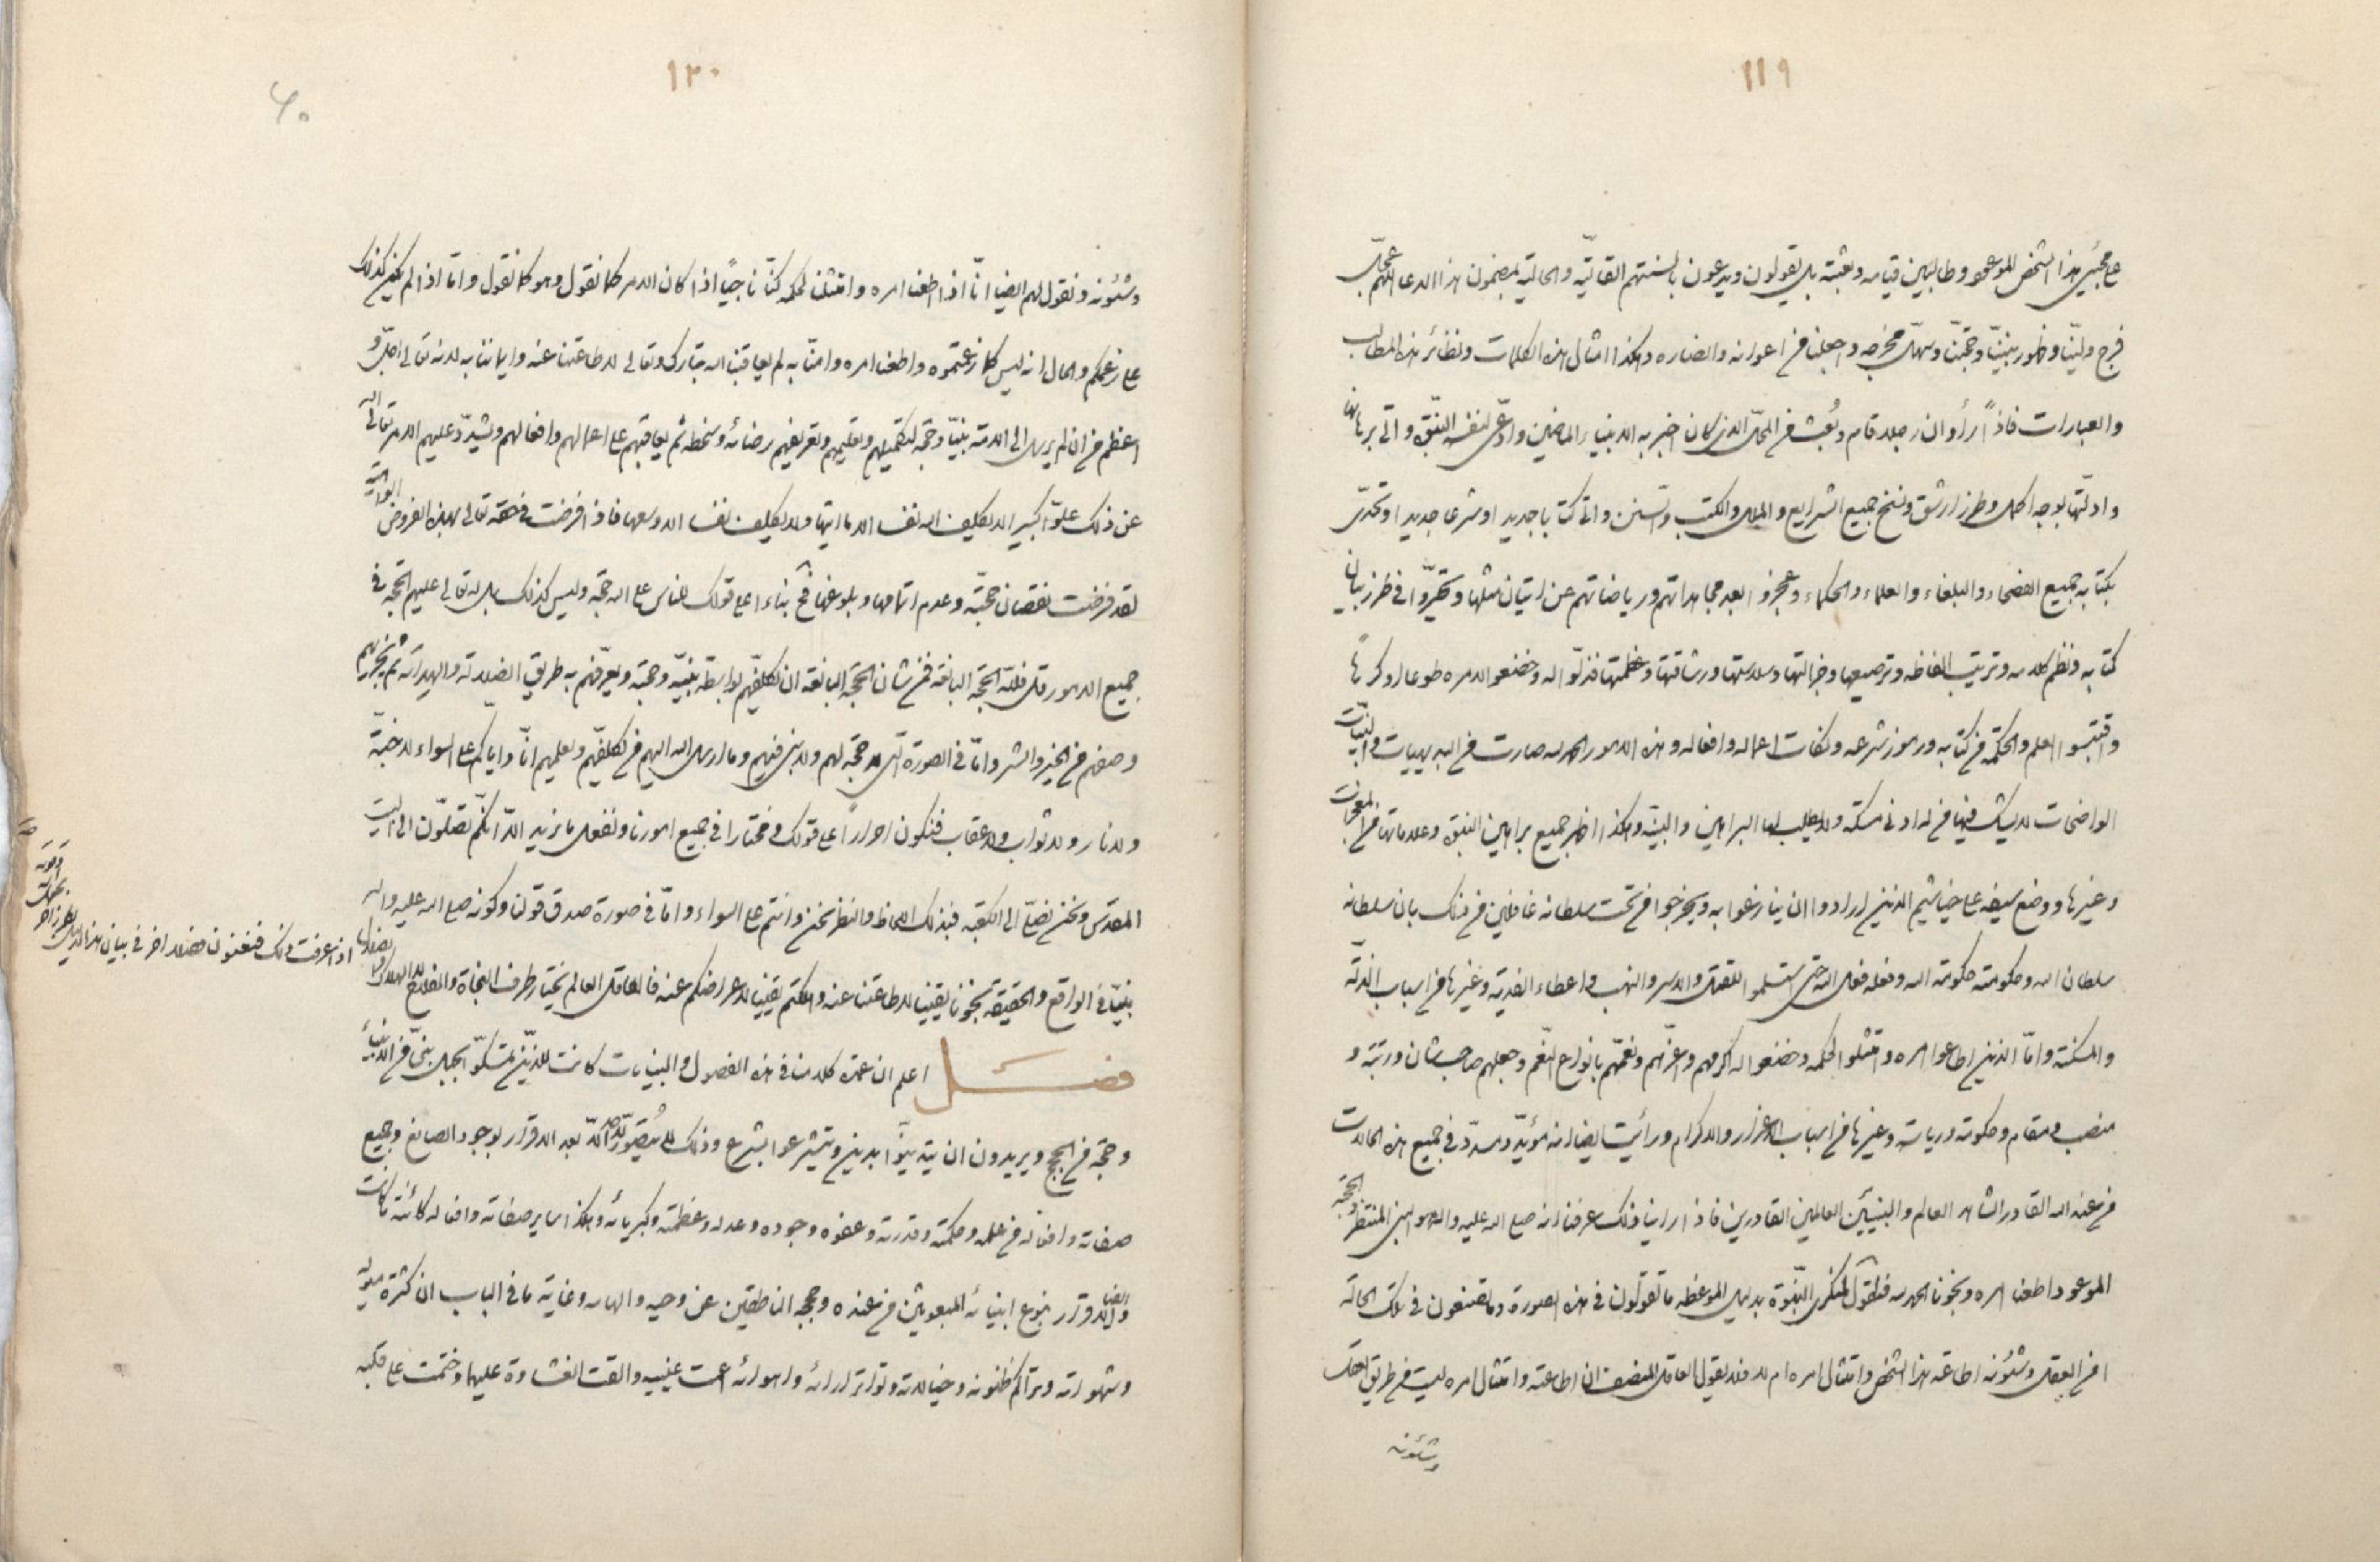 ١١٩
على مجيئ هذا الشخص الموعود وطالبين قيامه وبعثته بل يقولون ويدعون بالسنتهم القالية والحالية بمضمون هذا الدعا اللهم عجل
فرج ولينا وظهور نبينا وحجتنا وسهل مخرجه واجعلنا من اعوانه وانصاره وهكذا امثال هذه الكلمات ونظائر هذه المطالب
والعبارات فاذا رأوا ان رجلا قام وبعث في المحل الذي كان اخبر به الانبياء الماضين وادعى لنفسه النبوة واتى برهانها
وادلتها بوجه اكمل وطرز ارشق ونسخ جميع الشرايع والملل والكتب والسنن واتى كتابا جديدا وشرعا جديدا وتحدى
بكتابه جميع الفصحاء والبلغاء والعلماء والحكماء وعجزوا بعد مجاهداتهم ورياضاتهم عن اتيان مثلها وتحيروا في طرز بيان
كتابه ونظم كلامه وترتيب الفاظه وترصيعها وجزالتها وسلاستها ورشاقتها وعظمتها فذلوا له وخضعوا لامره طوعا او كرها
واقتبسوا العلم والحكمة من كتابه ورموز شرعه ونكات اعماله وافعاله وهذه الامور الحمد لله صارت من البديهيات والبينات
الواضحات لا يشك فيها من له ادنى مسكة ولا يطلب لها البراهين والبينة وهكذا اظهر جميع براهين النبوة وعلاماتها من المعجزات
وغيرها ووضع سيفه على خياشيم الذين ارادوا ان ينازعوا به ويخرجوا من تحت سلطانه غافلين من ذلك بان سلطانه
سلطان الله وحكومته حكومة الله وفعله فعل الله حتى استسلموا للقتل والاسر والنهب واعطاء الفدية وغيرها من اسباب الذلة
والمسكنة واما الذين اطاعوا امره وامتثلوا لحكمه وخضعوا له اكرمهم واعزهم ونعمهم بانواع النعم وجعلهم صاحب شان ورتبة و
منصب ومقام وحكومة ورياسة وغيرها من اسباب الاعزاز والاكرام ورأيت ايضا انه مؤيد ومسدد في جميع هذه الحالات
من عند الله القادر الشاهد العالم والنبيين العالمين القادرين فاذا راينا ذلك عرفنا انه صلى الله عليه واله هو النبي المنتظر والحجة
الموعود واطعنا امره ونجونا الحمد لله فنقول لمنكرى النبوة بدليل الموعظة ما تقولون في هذه الصورة وما تصنعون في تلك الحالة
أمن العقل وشئونه اطاعة هذا الشخص وامتثال امره ام لا فلا يقول العاقل المنصف ان اطاعته وامتثال امره ليست من طريق العقل
وشئونه
١٢٠
٦٠
وشئونه ونقول لهم ايضا انا اذا اطعنا امره وامتثلنا لحكمه كنا ناجيا اذا كان الامر كما نقول وهو كما نقول واما اذا لم يكن كذلك
على زعمكم والحال انه ليس كما زعمتموه واطعنا امره وامنا به لم يعاقبنا الله تبارك وتعالى لاطاعتنا عنه وايماننا به لانه تعالى اجل و
اعظم من ان لم يرسل الى الامة نبيا وحجة لتكميلهم وتعليمهم وتعريفهم رضائه وسخطه ثم يعاقبهم على اعمالهم وافعالهم ويشدد عليهم الامر تعالى الله
عن ذلك علوا كبيرا لا يكلف الله نفسا الا ما اتيها ولا يكلف نفسا الا وسعها فاذا فرضت في حقه تعالى بهذه الفروض الواهية
لقد فرضت نقصان حجته وعدم اتمامها وبلوغها فح بناء على قولك للناس على الله حجة وليس كذلك بل لله تعالى عليهم الحجة في
جميع الامور قل فلله الحجة البالغة فمن شان الحجة البالغة ان يكلفهم بواسطة نبيه وحجته ويعرفهم به طريق الضلالة والهداية ثم يجزيهم
وصفهم من الخير والشر واما في الصورة التي لا حجة لهم ولا نبي فيهم وما ارسل الله اليهم من يكلفهم ويعلمهم انا واياكم على السواء لا جنة
ولا نار ولا ثواب ولا عقاب فنكون احرارا على قولك ومختارا في جميع امورنا ونفعل ما نريد الا انكم تصلون الى البيت
المقدس ونحن نصلي الى الكعبة فبذلك اللحاظ والنظر نحن وانتم على السواء واما في صورة صدق قولنا وكونه صلى الله عليه واله
نبيا في الواقع والحقيقة نجونا يقينا لاطاعتنا عنه وهلكتم يقينا لاعراضكم عنه فالعاقل العالم يختار طرف النجاة والفلاح لا الهلاك
اذا عرفت ذلك فنعنون فصلا اخر في بيان هذا الدليل بطرز اخر
فصل اعلم ان عمدة كلامنا في هذه الفصول والبينات كانت للذين تمسكوا بحبل نبي من الانبياء
وحجة من الحجج ويريدون ان يتدينوا بدين ويتشرعوا بشرع وذلك لا يتصور الا بعد الاقرار بوجود الصانع وجميع
صفاته وافعاله من علمه وحكمته وقدرته وعفوه وجوده وعدله وعظمته وكبريائه وهكذا ساير صفاته وافعاله كائنة ما كانت
والاقرار ايضا بنوع انبيائه المبعوثين من عنده وحججه الناطقين عن وحيه والهامه وغاية ما في الباب ان كثرة ميوله
وشهواته وتراكم ظنونه وخيالاته وتواتر ارائه واهوائه اعمت عينيه والقت الغشاوة عليها وختمت على قلبه